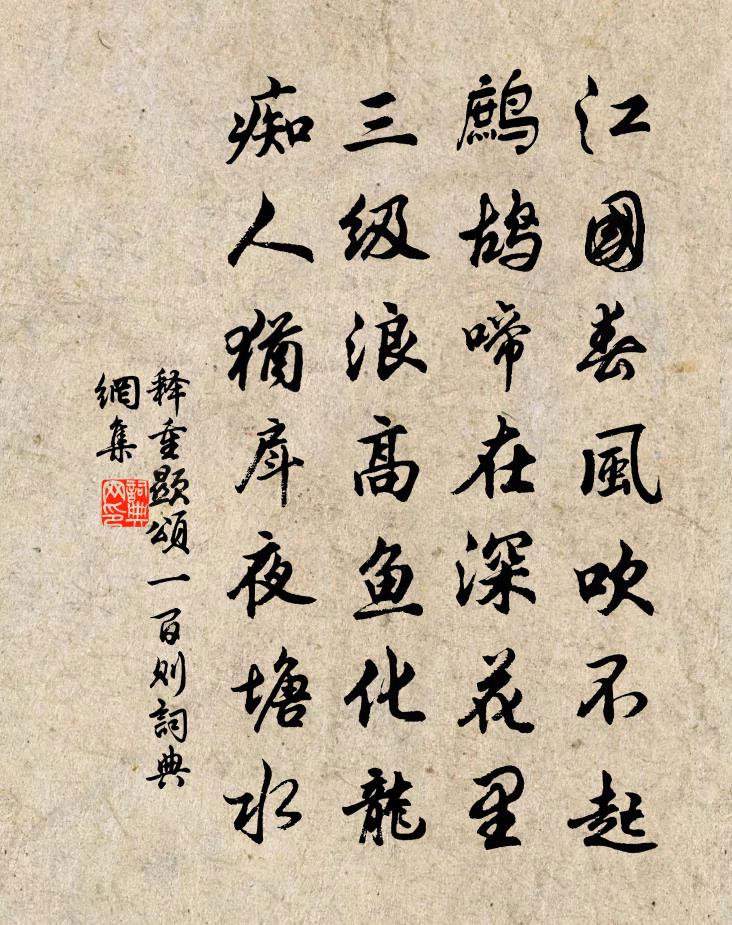 江國春風吹不起
鹧鸪啼在深花里
三级浪高鱼化龍
痴人猶戽夜塘水
释重顯頌一百则詞典
網集
詞典
网印